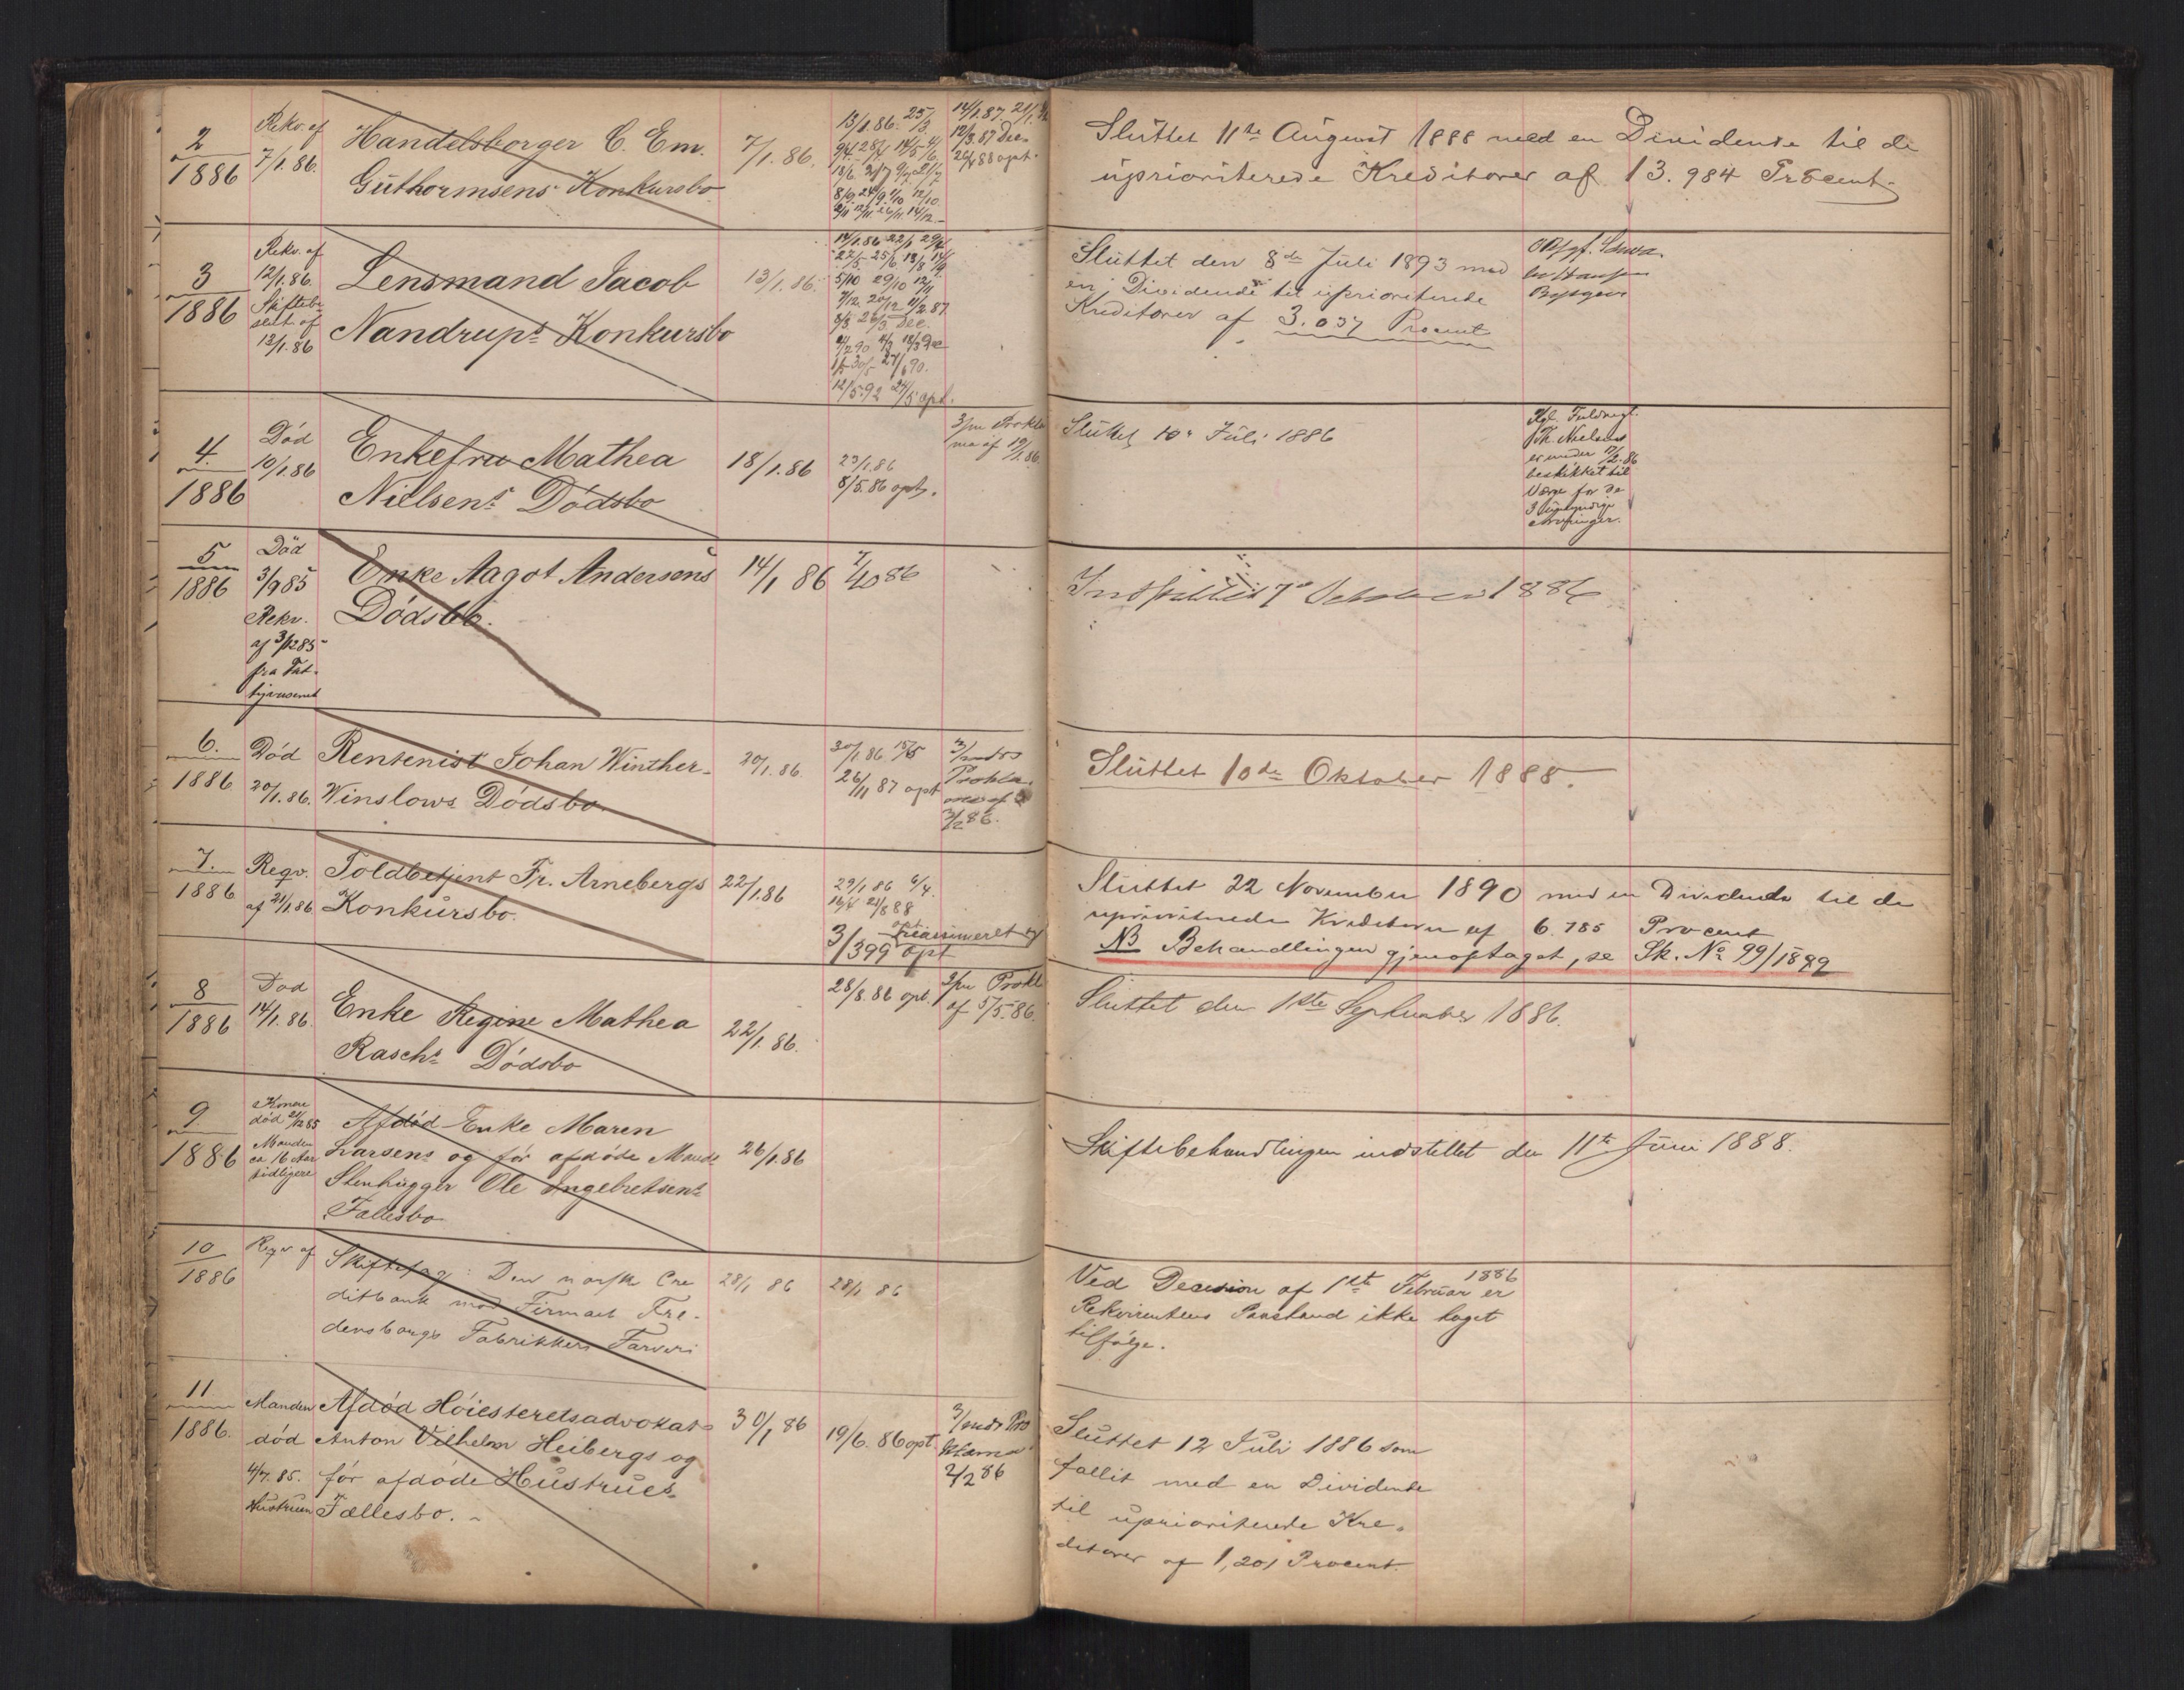 2
1886
Rekv. af
7/1.86.
Handelsborger C. Em.
Guthormsens Konkursbo
7/1.86.
13/1.86.
14/1.87.
12/3.87 Dec.
opt.
Sluttet 11te August 1888 med en Dividende til de
uprioriterede Kreditorer af 13.984 Procent.
3
1886
Rekv. af
12/1.86.
Skiftebe
slut. af
13/1.86
Lensmand Jacob
Nandrups Konkursbo
13/1.86.
14/1.86 22/1
5/10 29/10 12/11
Dec.
27/6 90.
12/5.92 24/5 opt.
Sluttet den 8de Juli 1893 med
en Dividende til uprioriterede
Kreditorer af 3.037 Procent
4.
1886
Død
10/1.86
Enkefru Mathea
Nielsens Dødsbo
18/1.86
23/1.86
8/5.86 opt.
3/m Prokla
ma af 19/1.86.
Sluttet 10de Juli 1886
Th. Nielsen
er under 17/2.86
beskikket til
Værge for de
3 umyndige
Arvinger.
5
1886
Død
3/9 85
Rekv.
af 3/12 85
fra Fat-
tigvæsenet
Enke Aagot Andersens
Dødsbo.
14/1 86
7/10 86
Indstillet 7de October 1886
6.
1886
Død
20/1.86.
Rentenist Johan Winther-
Winslows Dødsbo.
20/1.86.
30/1.86 15/5
26/11 87 opt
3/mdrs
Prokla-
ma af
3/2 86.
Sluttet 10de Oktober 1888.
7.
1886
Reqv.
af 21/1.86
Toldbetjent Fr. Arnebergs
Konkursbo.
22/1.86
29/1 86 6/4.
opt
reassumeret
3/1 399 opt
Sluttet 22 November 1890 med en Dividende til de
uprioriterede Kreditorer af 6.785 Procent
NB Behandlingen gjenoptaget, se Sk. No 99/1899
8
1886
Død
14/1.86.
Enke Regine Mathea
Raschs Dødsbo
22/1.86.
28/8.86 opt.
3/m Prokl
af 5/5.86.
Sluttet den 1ste September 1886.
9.
1886
Konen
død 21/12 85
Manden
ca 16 Aar
tidligere
Afdød Enke Maren
Larsens og før afdøde Mands
Stenhugger Ole Ingebretsens
Fællesbo
26/1.86
Skiftebehandlingen indstillet den 11te Juni 1888.
10
1886
Reqv. af
Skiftesag: Den norske Cre
ditbank mod Firmaet Fre-
densborgs Fabrikkers Farveri
28/1 86
28/1 86
Ved Decision af 1ste Februar 1886 er
Rekvirentens Paastand ikke taget
tilfølge.
11
1886.
Manden
død
4/7.85.
Hustruen
Afdød Høiesteretsadvokat
Anton Vilhelm Heibergs og
før afdøde Hustrues
Fællesbo.
30/1 86
19/6.86 opt.
3/mdr Pro
klama
2/2 86
Sluttet 12 Juli 1886 som
fallit med en Dividende
til uprioriterede Kre-
ditorer af 1,201 Procent.